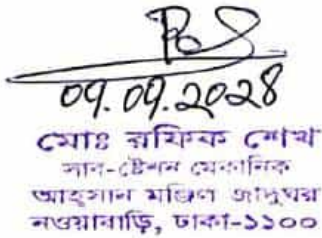 09.09.2028
মোঃ রফিক শেখ
সাব-ষ্টেশন মেকানিক
আহসান মঞ্জিল জাদুঘর
নওয়াবাড়ি, ঢাকা-১১০০